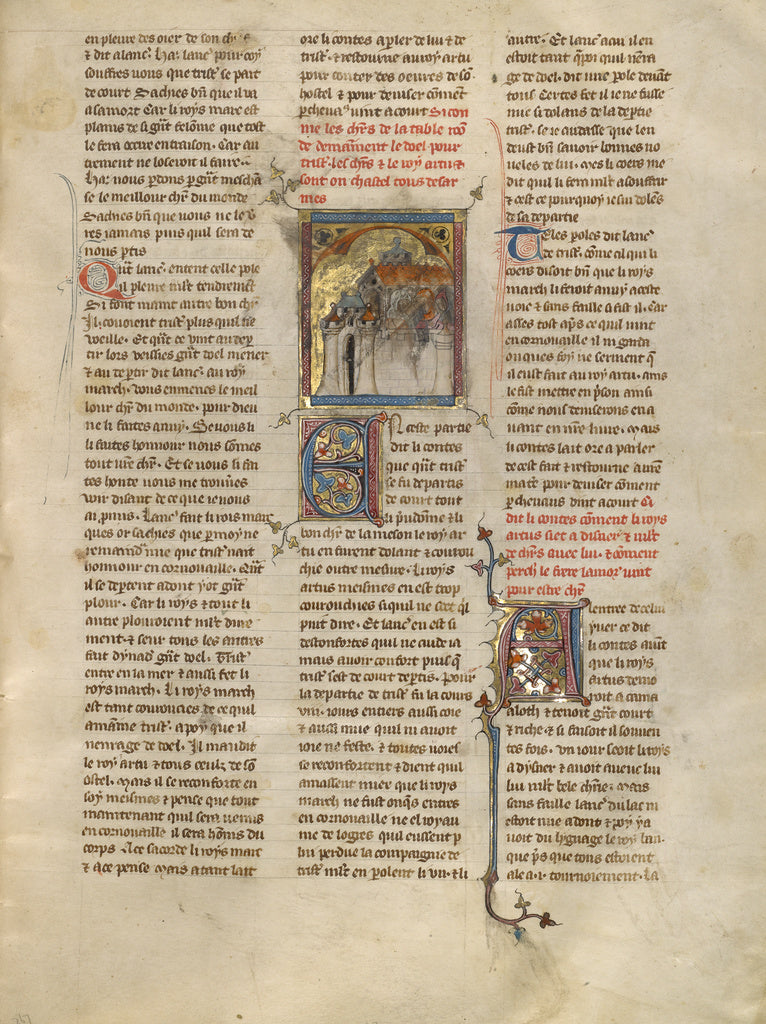 en pleure des oier de son
⁊ dit a lanc̄. Ha. lanc̄ pour coy
souffres vous que trist̄ se part
de court Sachies bn̄ que il va
a sa mort Car li roys marc est
plains de si gr̄t felonie que tost
le fera
trement ne loseroit il faire.
Ha. nous pdons p gr̄t
le meillour chr̄ du monde
Sachies bn̄ que vous ne le v̄
res iamais puis quil sera de
nous ptis
Qn̄t lanc̄. entent celle pole
il pleure mlt̄ tendremēt
Si font maint autre bon chr̄
veille. Et qn̄t ce vint au dep
tir lors veissies gn̄t doel mener
⁊ au deptir dit lanc̄. au roy
march. vous enmenes le meil
lour chr̄ du monde. pour dieu
ne li faites anuy. Se vous li
li faites honnour nous sōmes
tout vr̄e chr̄. Et se vous li fai
tes honte vous me trouures
voir disant de ce que ie vous
ai pmis. Lanc̄ fait li rois marc
ques or sachies que p moy ne
remaindra mie que trist̄ nait
honnour en cornouaille. Qn̄t
il se deptent adont y ot gn̄t
plour. Car li roys ⁊ tout li
autre plouroient mlt̄ dure
ment. ⁊ seur tous les autres
fait dynad gn̄t doel. Trist̄
entre en la mer ⁊ aussi fet li
roys march. Li roys march
est tant courouciés de ce quil
amaīne trist̄. a poy que il
nenrage de doel. Il maudit
le roy artu ⁊ tous ceulz de sō
ostel. mais il se reconforte en
soy meismes ⁊ pense que tout
maintenant quil sera venus
en cornouaille il sera hōnis du
corps A ce sacorde li roys marc
⁊ a ce pense Mais atant lait
ore li contes a pler de lui ⁊ de
trist̄. ⁊ restourne au roy artu
pour conter des oeures de sō
hostel ⁊ pour deuiser cōment
pcheuax vint a court Si con
me les chr̄s de la table rōō
de demainnent le doel pour
trist̄. les chr̄s ⁊ le roy artus
sont on chastel tous desar
mes
En ceste partie
dit li contes
que qn̄t trist̄
se fu departis
de court tout
li pudōme ⁊ li
bon chr̄ de la meson le roy ar
tu en furent dolant ⁊ courou
chie outre mesure. Li roys
artus meismes en est trop
courouchies si quil ne scet ql̄
puit dire. Et lanc̄ en est si
desconfortes quil ne cuide ia
mais auoir confort puis q̄
trist̄ sest de court deptis. Pour
la departie de trist̄ fu la cours
viii. iours entiers aussi coie
⁊ aussi mue quil ni auoit
ioie ne feste. ⁊ toutes voies
se reconfortent ⁊ dient quil
amassent miex que li roys
march ne fust onq̄s entres
en cornouaille ne el royau
me de logres quil eussent p
lui perdue la compaignie de
trist̄ mlt̄ en polent li vn. ⁊ li
autre. Et lanc̄ aqui il en
estoit tant q̄ poi quil nēra
ge de doel. dit vne pole deuāt
tous Certes fet il ie ne fusse
mie si dolans de la deptie
trist̄. se ie cuidasse que len
deust bn̄ sauoir bonnes no
ueles de lui. mes li coers me
dit quil li fera mlt̄ a souffrir
⁊ cest ce pourquoy ie sui dolēs
de sa departie
Teles poles dit lanc̄
de trist̄. cōme cil qui li
coers disoit bn̄ que li roys
march li feroit anuy a ceste
voie ⁊ sans faille si fist il. Car
asses tost aps̄ ce quil vint
en cornouaille il ni garda
onques foy ne serment q̄
il eust fait au roy artu. ains
le fist mettre en pson ansi
cōme nous deuiserons en a
uant en nr̄e liure. Mais
li contes lait ore a parler
de cest fait ⁊ restourne a ure
matere pour deuiser cōment
pcheuaus vint a court Ci
dit li contes cōment li roys
artus siet a disner ⁊ mlt̄
de chr̄s auec lui. ⁊ cōment
perch le frere lamorat vint
pour estre chr̄
A lentree de celui
yuer ce dit
li contes auīt
que li roys
artus demo
roit a cama
aloth ⁊ tenoit gn̄t court
⁊ riche ⁊ si faisoit il souuen
tes fois. Vn iour seoit li roys
a dysner ⁊ auoit auecue lui
lui mlt̄ bele chrīe. Mais
sans faille lanc̄ du lac ni
estoit mie adont ⁊ poy y a
uoit du lygnage le roy ban.
que ps̄ que tous estoient
ale a .i. tournoiement. La